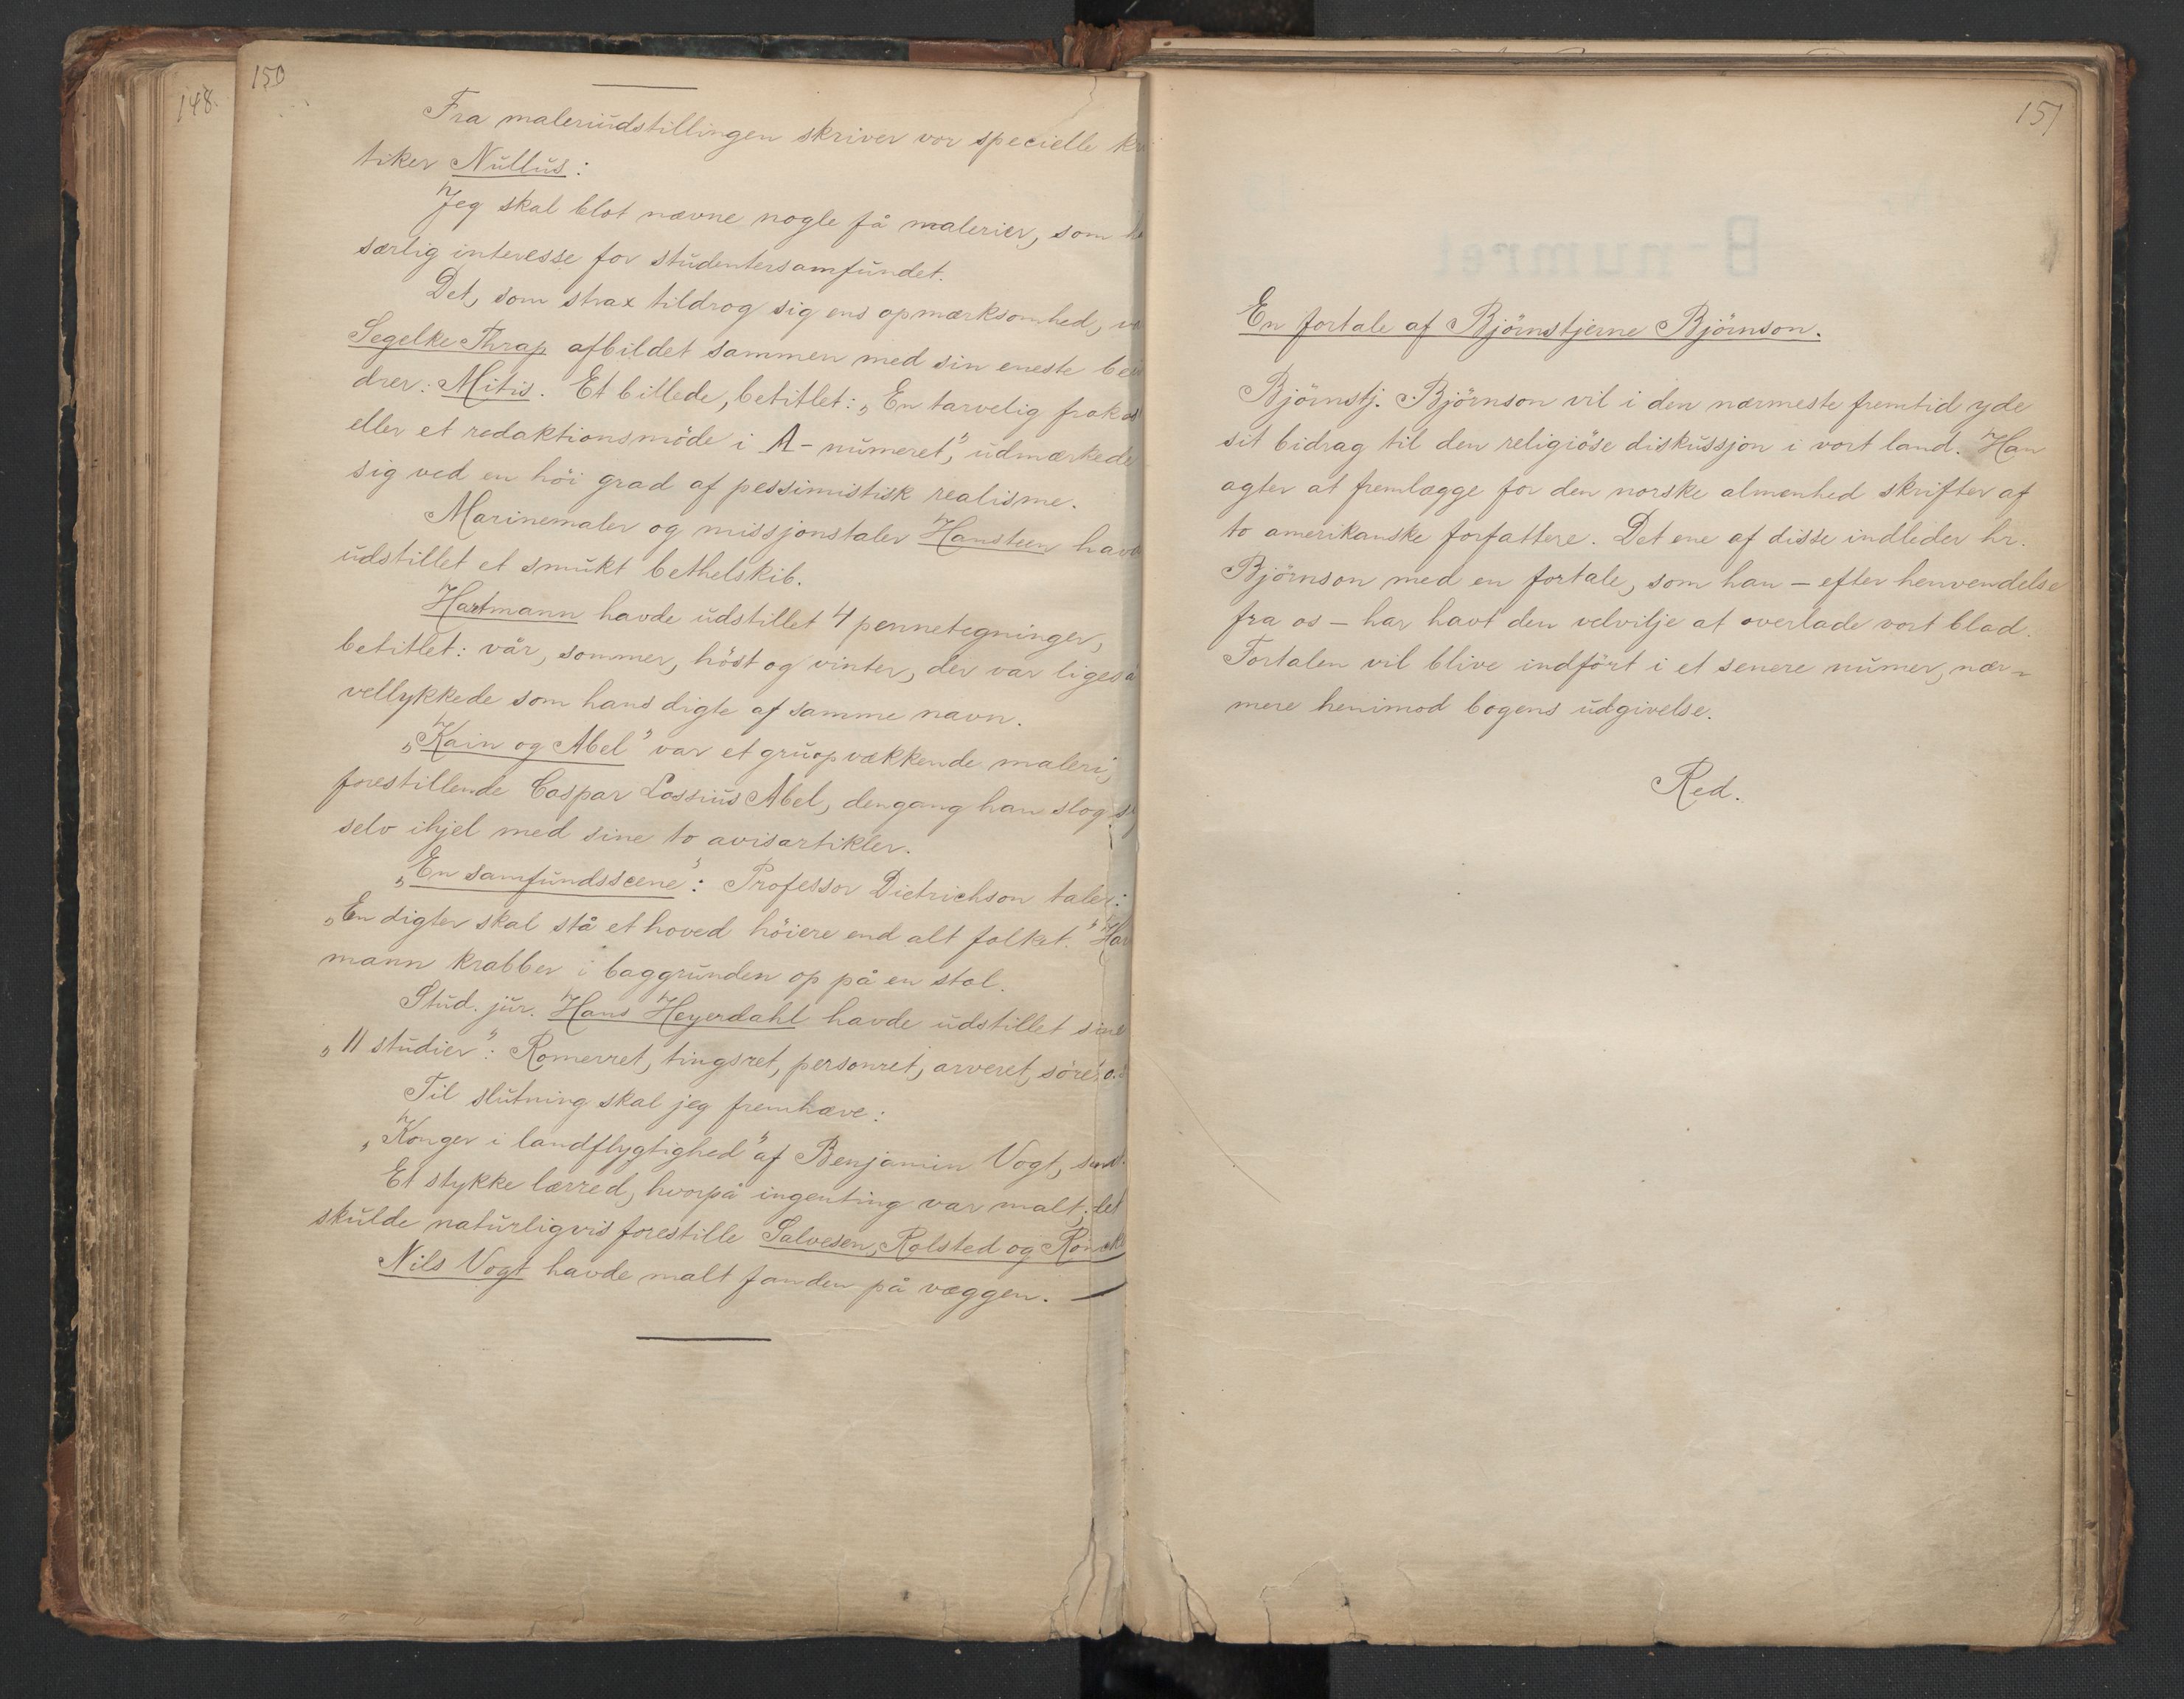 148.
150
Fra maleriudstillingen skriver vor specielle kri
tiker Nullus:
Jeg skal blot nævne nogle få malerier, som
særlig interesse for studentersamfundet.
Det, som strax tildrog sig ens opmærksomhed, va
Segelke Thrap afbildet sammen med sin eneste
drer: Mitis. Et billede, betitlet: „En tarvelig frokost
eller et redaktionsmöde i A-numeret", udmærkede
sig ved en höi grad af pessimistisk realisme.
Marinemaler og missjonstaler Hansteen havde
udstillet et smukt bethelskib.
Hartmann havde udstillet 4 pennetegninger,
betitlet: vår, sommer, höst og vinter, der var ligeså
vellykkede som hans digte af samme navn.
„Kain og Abel" var et gruopvækkende maleri,
forestillende Caspar Lossius Abel, dengang han slog
selv ihjel med sine to avisartikler.
„En samfundsscene": Professor Dietrichson taler:
„En digter skal stå et hoved höiere end alt folket." Har
mann krabber i baggrunden op på en stol.
Stud. jur. Hans Heyerdahl havde udstillet sine
„11 studier": Romerret, tingsret, personret, arveret, söret
Til slutning skal jeg fremhæve:
„Konger i landflygtighed" af Benjamin Vogt, samt.
Et stykke lærred, hvorpå ingenting var malt; det
skulde naturligvis forestille Salvesen, Rolsted og
Nils Vogt havde malt fanden på væggen. —
151
En fortale af Björnstjerne Björnson.
Björnstj. Björnson vil i den nærmeste fremtid yde
sit bidrag til den religiöse diskussjon i vort land. Han
agter at fremlægge for den norske almenhed skrifter af
to amerikanske forfattere. Det ene af disse indleder hr.
Björnson med en fortale, som han – efter henvendelse
fra os – har havt den velvilje at overlade vort blad.
Fortalen vil blive indfört i et senere numer, nær-
mere henimod bogens udgivelse.
Red.